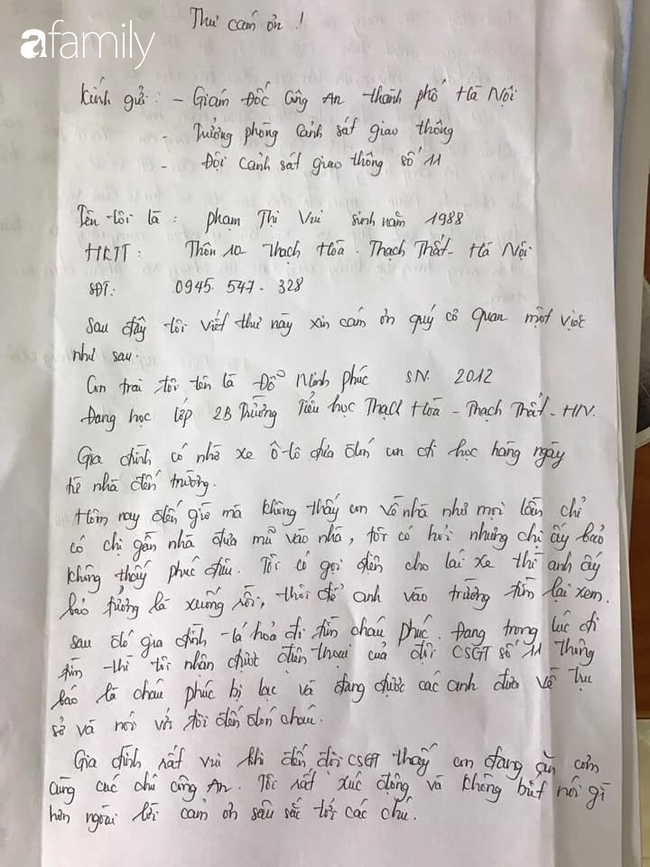 afamily
Thư cảm ơn !
Kính gửi : - Giám Đốc Công An thành phố Hà Nội
- Trưởng phòng Cảnh sát giao thông
- Đội Cảnh sát giao thông số 11
Tên tôi là : Phạm Thị Vui sinh năm 1988
HKTT: Thôn 10 Thạch Hòa - Thạch Thất - Hà Nội
SĐT: 0945. 547. 328
Sau đây tôi viết thư này xin cảm ơn quý cơ quan một việc
như sau.
Con trai tôi tên là Đỗ Minh Phúc SN. 2012
Đang học lớp 2B Trường Tiểu học Thạch Hoà - Thạch Thất - HN.
Gia đình có nhờ xe ô-tô đưa đón con đi học hàng ngày
từ nhà đến trường.
Hôm nay đến giờ mà không thấy con về nhà như mọi lần chỉ
có chị gần nhà đưa mũ vào nhà, tôi có hỏi nhưng chị ấy bảo
không thấy phúc đâu. Tôi có gọi điện cho lái xe thì anh ấy
bảo tưởng là xuống rồi, thôi để anh vào trường tìm lại xem.
Sau đó gia đình tá hoả đi tìm cháu Phúc. Đang trong lúc đi
tìm thì tôi nhận được điện thoại của đội CSGT số 11 thông
báo là cháu phúc bị lạc và đang được các anh đưa về trụ
sở và nói với tôi đến đón cháu.
Gia đình rất vui khi đến đội CSGT thấy con đang ăn cơm
cùng các chú công An. Tôi rất xúc động và không biết nói gì
hơn ngoài lời cảm ơn sâu sắc tới các chú.